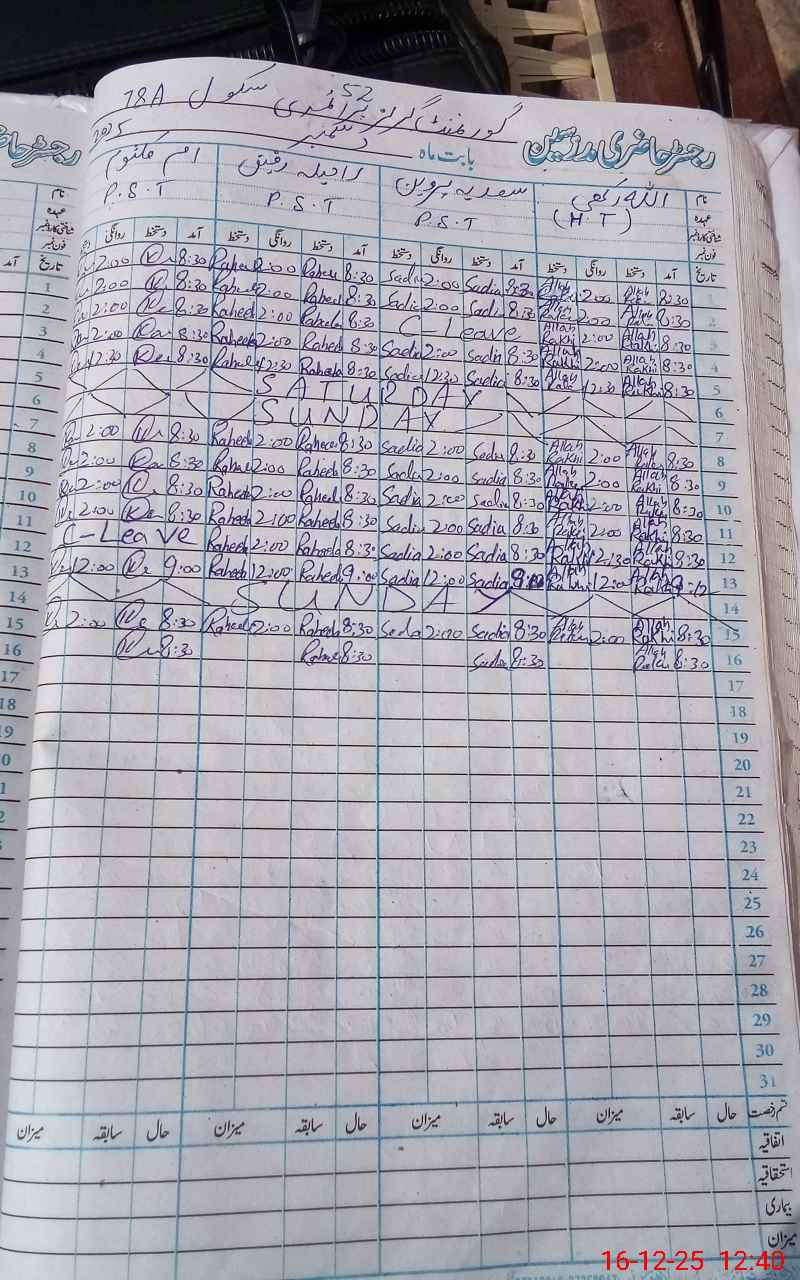 گورنمنٹ گرلز پرائمری سکول 78A
52
رجسٹر حاضری مدرسین
بابت ماہ دسمبر 2025
نام اللہ رکھی سعدیہ پروین راحیلہ رفیق ام کلثوم
عہدہ (H.T) P.S.T P.S.T P.S.T
فون نمبر
تاریخ آمد دستخط روانگی دستخط آمد دستخط روانگی دستخط آمد دستخط روانگی دستخط آمد دستخط روانگی
1 8:30 Allah Rakhi 2:00 Allah Rakhi 8:30 Sadia 2:00 Sadia 8:30 Raheela 2:00 Raheela 8:30 2:00
2 8:30 Allah Rakhi 2:00 Allah Rakhi 8:30 Sadia 2:00 Sadia 8:30 Raheela 2:00 Raheela 8:30 2:00
3 8:30 Allah Rakhi 2:00 Allah Rakhi C-Leave 8:30 Raheela 2:00 Raheela 8:30 2:00
4 8:30 Allah Rakhi 2:00 Allah Rakhi 8:30 Sadia 2:00 Sadia 8:30 Raheela 2:00 Raheela 8:30 2:00
5 8:30 Allah Rakhi 12:30 Allah Rakhi 8:30 Sadia 12:30 Sadia 8:30 Raheela 12:30 Raheela 8:30 12:30
6 SATURDAY
7 SUNDAY
8 8:30 Allah Rakhi 2:00 Allah Rakhi 8:30 Sadia 2:00 Sadia 8:30 Raheela 2:00 Raheela 8:30 2:00
9 8:30 Allah Rakhi 2:00 Allah Rakhi 8:30 Sadia 2:00 Sadia 8:30 Raheela 2:00 Raheela 8:30 2:00
10 8:30 Allah Rakhi 2:00 Allah Rakhi 8:30 Sadia 2:00 Sadia 8:30 Raheela 2:00 Raheela 8:30 2:00
11 8:30 Allah Rakhi 2:00 Allah Rakhi 8:30 Sadia 2:00 Sadia 8:30 Raheela 2:00 Raheela 8:30 2:00
12 8:30 Allah Rakhi 12:30 Allah Rakhi 8:30 Sadia 2:00 Sadia 8:30 Raheela 2:00 Raheela C-Leave
13 Allah Rakhi 12:00 Allah Rakhi Sadia 12:00 Sadia 9:00 Raheela 12:00 Raheela 9:00 12:00
14 SUNDAY
15 8:30 Allah Rakhi 2:00 Allah Rakhi 8:30 Sadia 2:00 Sadia 8:30 Raheela 2:00 Raheela 8:30 2:00
16 8:30 Allah Rakhi 8:30 Sadia 8:30 Raheela 8:30
17
18
19
20
21
22
23
24
25
26
27
28
29
30
31
قسم رخصت حال سابقہ میزان حال سابقہ میزان حال سابقہ میزان حال سابقہ میزان
اتفاقیہ
استحقاقیہ
بیماری
میزان
16-12-25 12:40